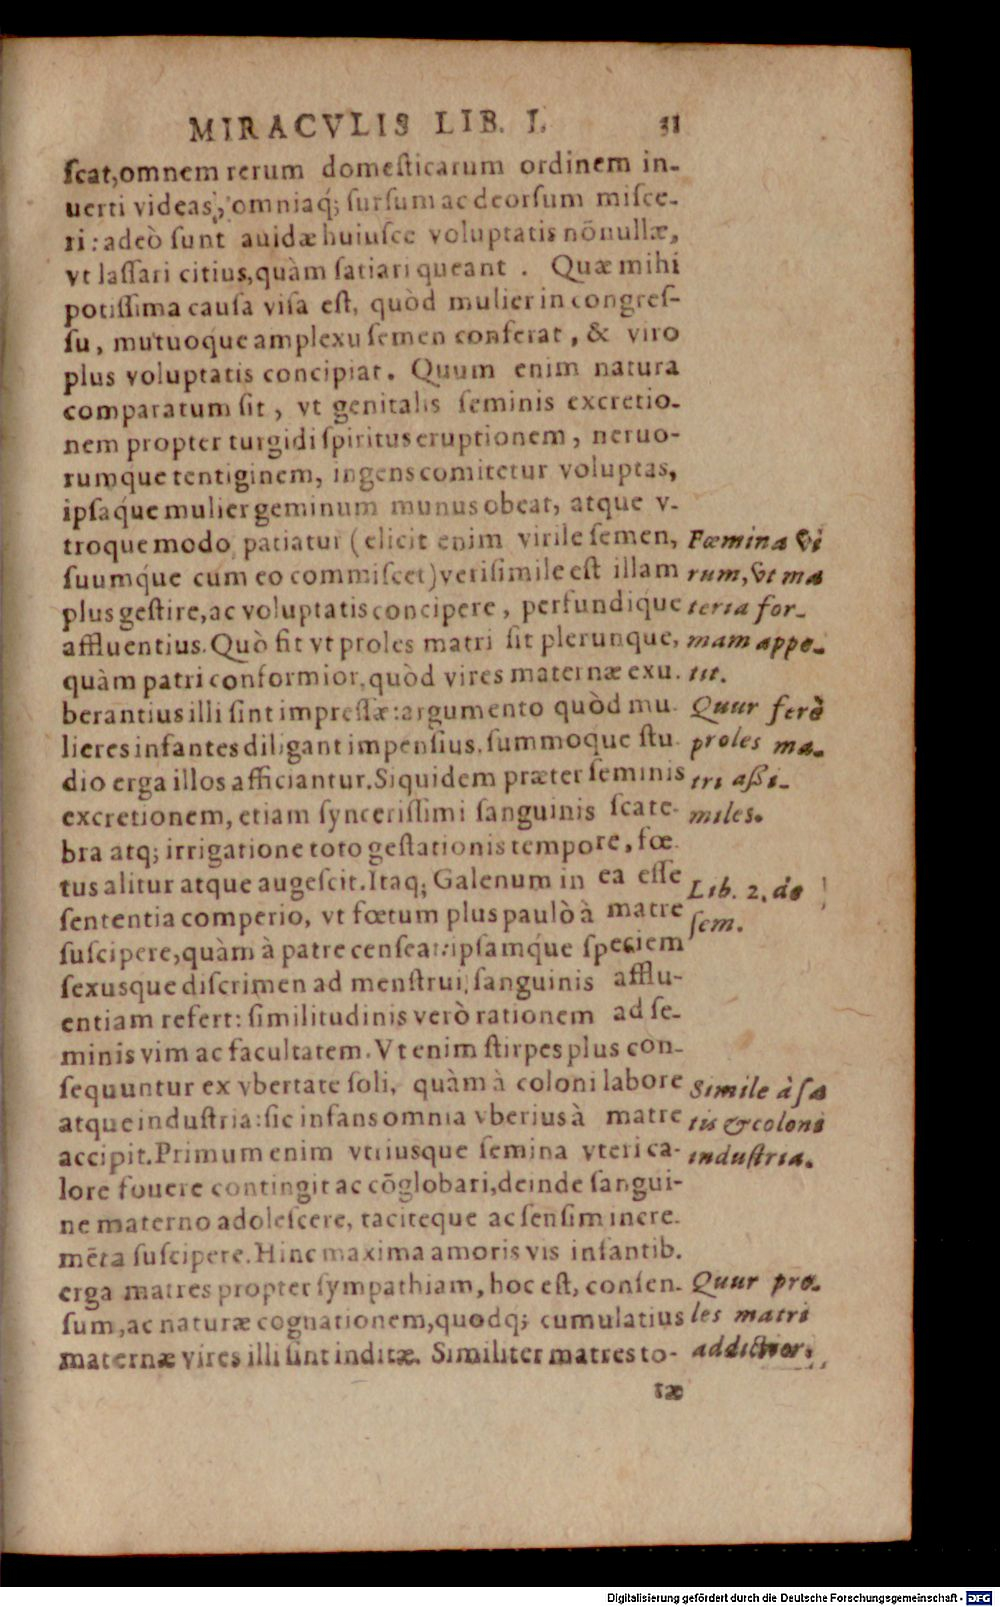 MIRACVLIS LIB. I. 31
ſcat,omnem rerum domeſticarum ordinem in-
uerti videas, omniaq́; ſurſum ac deorſum miſce-
ri: adeò ſunt auidæ huiuſce voluptatis nõnullæ,
vt laſſari citius,quàm ſatiari queant . Quæ mihi
potiſſima cauſa viſa eſt, quòd mulier in congreſ-
ſu, mutuoque amplexu ſemen conferat, & viro
plus voluptatis concipiat. Quum enim natura
comparatum ſit, vt genitalis ſeminis excretio-
nem propter turgidi ſpiritus eruptionem, neruo-
rumque tentiginem, ingens comitetur voluptas,
ipſaq́ue mulier geminum munus obeat, atque v-
troque modo patiatur (elicit enim virile ſemen,
ſuumq́ue cum eo commiſcet) veriſimile eſt illam
plus geſtire,ac voluptatis concipere, perfundique
affluentius. Quò fit vt proles matri ſit plerunque,
quàm patri conformior, quòd vires maternæ exu-
berantius illi ſint impreſſæ: argumento quòd mu-
lieres infantes diligant impenſius, ſummoque ſtu-
dio erga illos afficiantur. Siquidem præter ſeminis
excretionem, etiam ſynceriſſimi ſanguinis ſcate-
bra atq; irrigatione toto geſtationis tempore, fœ-
tus alitur atque augeſcit. Itaq; Galenum in ea eſſe
ſententia comperio, vt fœtum plus paulò à matre
ſuſcipere,quàm à patre cenſeat: ipſamq́ue ſpeciem
ſexusque diſcrimen ad menſtrui ſanguinis afflu-
entiam refert: ſimilitudinis verò rationem ad ſe-
minis vim ac facultatem. Vt enim ſtirpes plus con-
ſequuntur ex vbertate ſoli, quàm à coloni labore
atque induſtria: ſic infans omnia vberius à matre
accipit. Primum enim vtriusque ſemina vteri ca-
lore fouere contingit ac cõglobari, deinde ſangui-
ne materno adoleſcere, taciteque ac ſenſim incre-
mẽta ſuſcipere. Hinc maxima amoris vis infantib.
erga matres propter ſympathiam, hoc eſt, conſen-
ſum, ac naturæ cognationem, quodq; cumulatius
maternæ vires illi ſint inditæ. Similiter matres to-
tæ
Fœmina vi
rum, vt ma
teria for-
mam appe-
tit.
Quur ferè
proles ma-
tri aßi-
miles.
Lib. 2. de
ſem.
Simile à ſa
tis & coloni
induſtria.
Quur pro-
les matri
addictior.
Digitalisierung gefördert durch die Deutsche Forschungsgemeinschaft - DFG